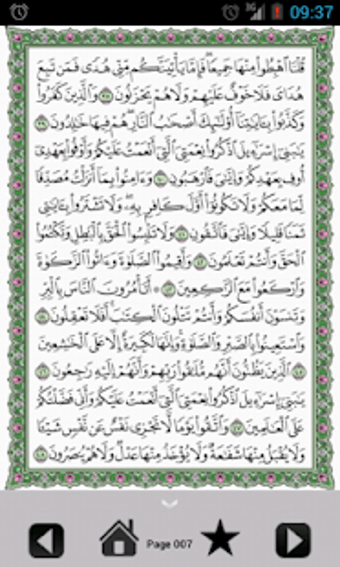 09:37
قُلْنَا ٱهْبِطُوا۟ مِنْهَا جَمِيعًا ۖ فَإِمَّا يَأْتِيَنَّكُم مِّنِّى هُدًى فَمَن تَبِعَ
هُدَاىَ فَلَا خَوْفٌ عَلَيْهِمْ وَلَا هُمْ يَحْزَنُونَ ٣٨ وَٱلَّذِينَ كَفَرُوا۟
وَكَذَّبُوا۟ بِـَٔايَـٰتِنَآ أُو۟لَـٰٓئِكَ أَصْحَـٰبُ ٱلنَّارِ ۖ هُمْ فِيهَا خَـٰلِدُونَ ٣٩
يَـٰبَنِىٓ إِسْرَٰٓءِيلَ ٱذْكُرُوا۟ نِعْمَتِىَ ٱلَّتِىٓ أَنْعَمْتُ عَلَيْكُمْ وَأَوْفُوا۟ بِعَهْدِىٓ
أُوفِ بِعَهْدِكُمْ وَإِيَّـٰىَ فَٱرْهَبُونِ ٤٠ وَءَامِنُوا۟ بِمَآ أَنزَلْتُ مُصَدِّقًا
لِّمَا مَعَكُمْ وَلَا تَكُونُوٓا۟ أَوَّلَ كَافِرٍۭ بِهِۦ ۖ وَلَا تَشْتَرُوا۟ بِـَٔايَـٰتِى
ثَمَنًا قَلِيلًا وَإِيَّـٰىَ فَٱتَّقُونِ ٤١ وَلَا تَلْبِسُوا۟ ٱلْحَقَّ بِٱلْبَـٰطِلِ وَتَكْتُمُوا۟
ٱلْحَقَّ وَأَنتُمْ تَعْلَمُونَ ٤٢ وَأَقِيمُوا۟ ٱلصَّلَوٰةَ وَءَاتُوا۟ ٱلزَّكَوٰةَ
وَٱرْكَعُوا۟ مَعَ ٱلرَّٰكِعِينَ ٤٣ ۞ أَتَأْمُرُونَ ٱلنَّاسَ بِٱلْبِرِّ
وَتَنسَوْنَ أَنفُسَكُمْ وَأَنتُمْ تَتْلُونَ ٱلْكِتَـٰبَ ۚ أَفَلَا تَعْقِلُونَ ٤٤
وَٱسْتَعِينُوا۟ بِٱلصَّبْرِ وَٱلصَّلَوٰةِ ۚ وَإِنَّهَا لَكَبِيرَةٌ إِلَّا عَلَى ٱلْخَـٰشِعِينَ
٤٥ ٱلَّذِينَ يَظُنُّونَ أَنَّهُم مُّلَـٰقُوا۟ رَبِّهِمْ وَأَنَّهُمْ إِلَيْهِ رَٰجِعُونَ ٤٦
يَـٰبَنِىٓ إِسْرَٰٓءِيلَ ٱذْكُرُوا۟ نِعْمَتِىَ ٱلَّتِىٓ أَنْعَمْتُ عَلَيْكُمْ وَأَنِّى فَضَّلْتُكُمْ
عَلَى ٱلْعَـٰلَمِينَ ٤٧ وَٱتَّقُوا۟ يَوْمًا لَّا تَجْزِى نَفْسٌ عَن نَّفْسٍ شَيْـًٔا
وَلَا يُقْبَلُ مِنْهَا شَفَـٰعَةٌ وَلَا يُؤْخَذُ مِنْهَا عَدْلٌ وَلَا هُمْ يُنصَرُونَ ٤٨
Page 007